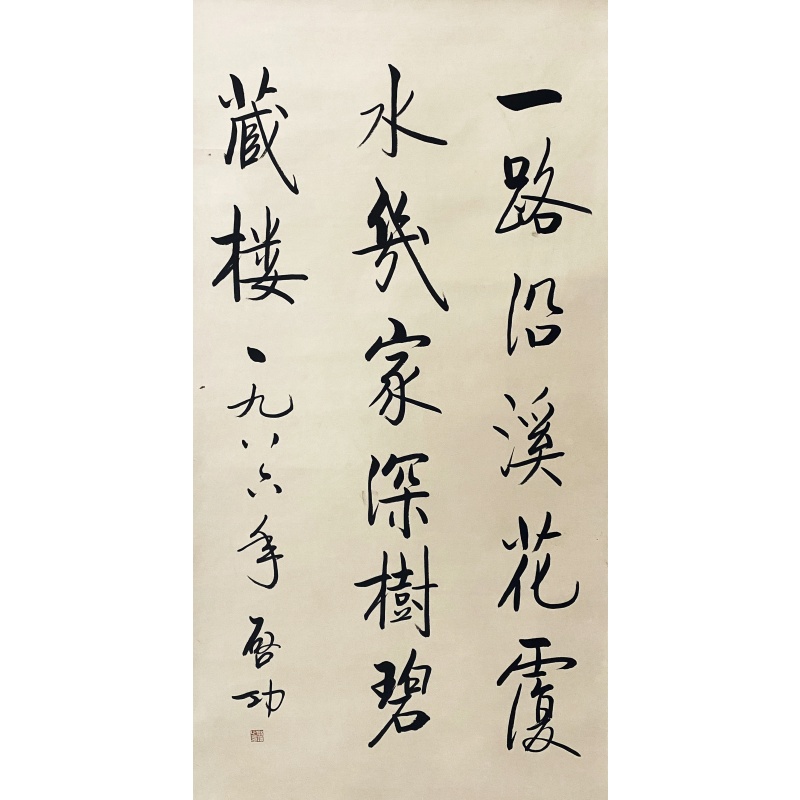 一路沿溪花覆
水幾家深樹碧
藏楼一九八六年启功